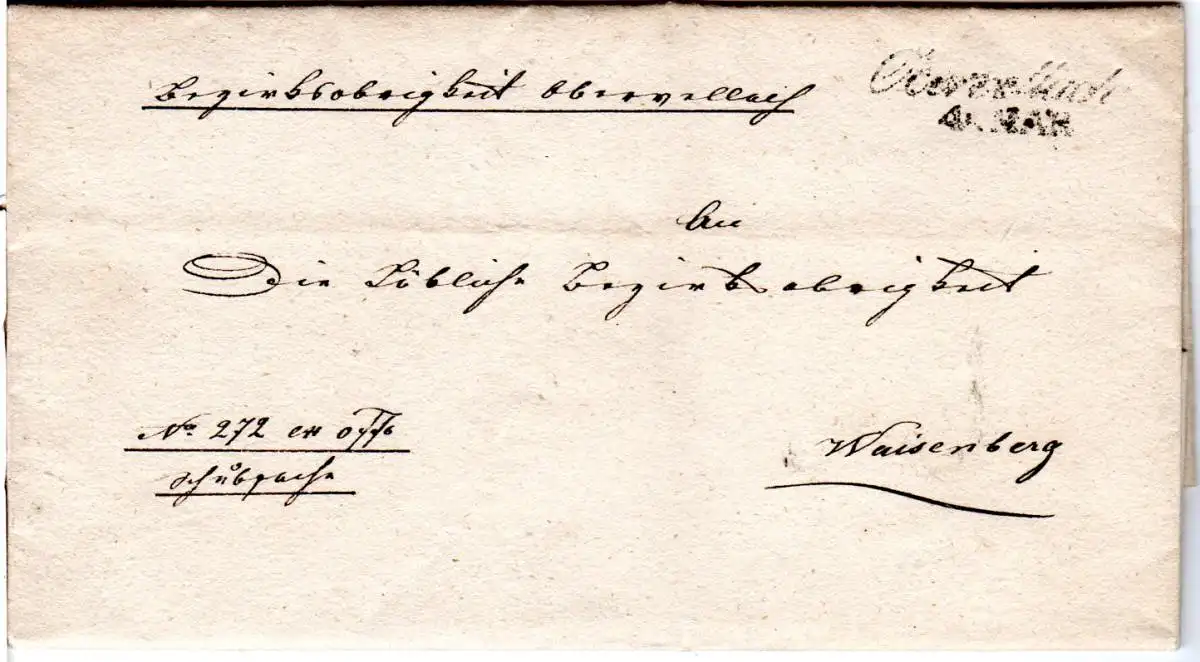 Bezirksobrigkeit Obervellach
Obervellach
MÄR
An
Die Löbliche Bezirksobrigkeit
No. 272 ex offo
Schubsache
Waisenberg